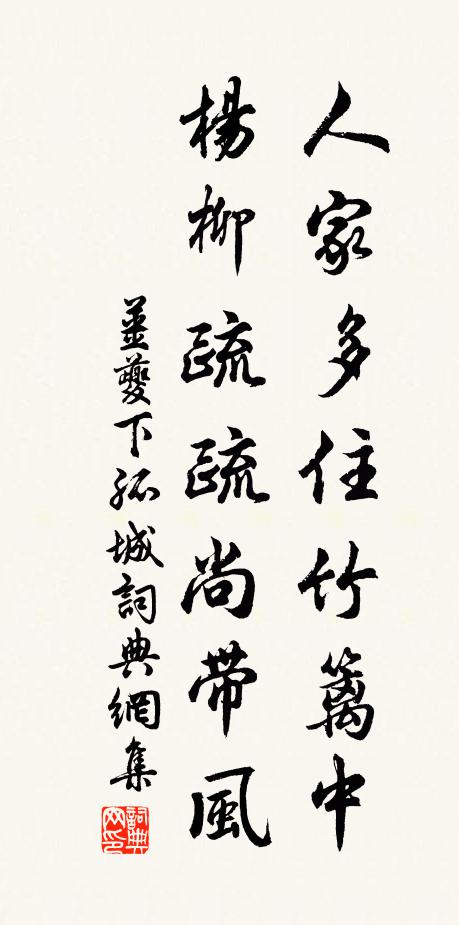 人家多住竹籬中
楊柳疏疏尚帶風
薑夔下孤城詞典網集
詞典网印